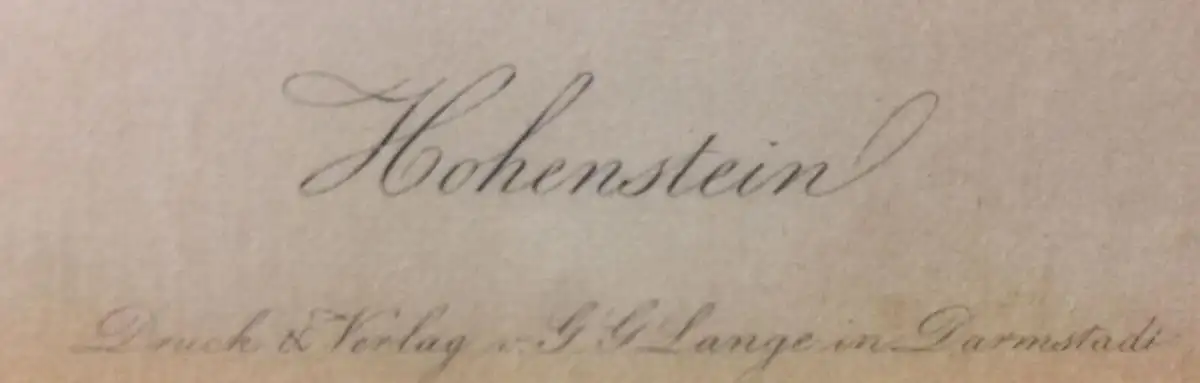 Hohenstein
Druck & Verlag v. G G Lange in Darmstadt